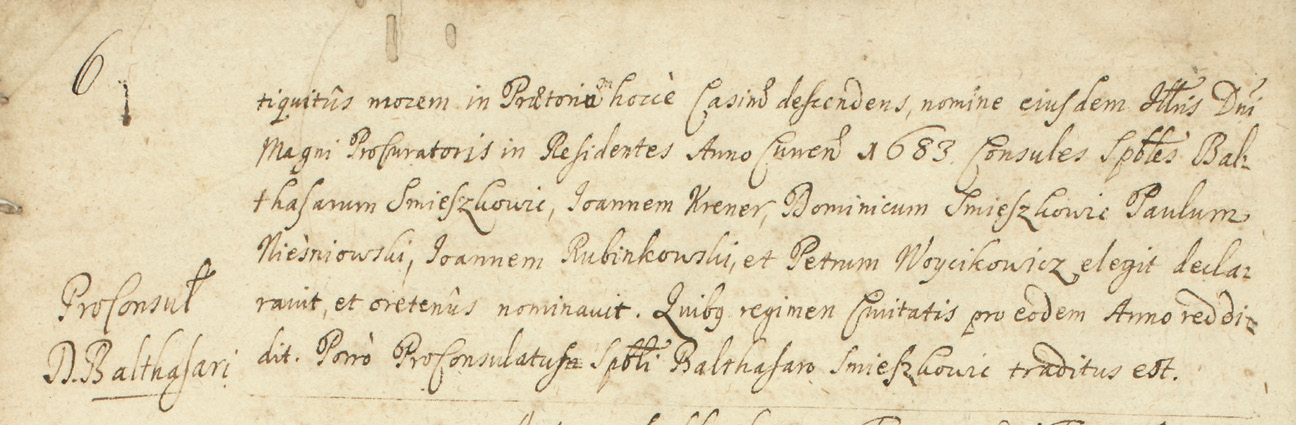 6
tiquitûs morem in Prætorium hocce Casim̃ descendens, nomine eiusdem Illtris Dñi
Magni Procuratoris in Residentes Anno Curren̄ 1683 Consules Spbles Bal-
thasarum Smieszkowic, Joannem Krener, Dominicum Smieszkowic Paulum
Nieśniowski, Joannem Rubinkowski, et Petrum Woycikowicz elegit decla-
ravit, et oretenûs nominavit. Quibq regimen Civitatis pro eodem Anno reddi-
dit. Porrò ProConsulatus Spbli Balthasaro Smieszkowic traditus est.
ProConsul
D. Balthasari